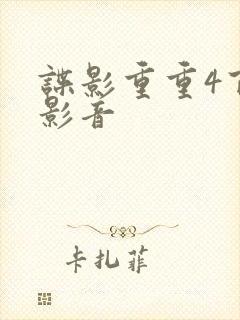 諜影重重4
影音
卡扎菲